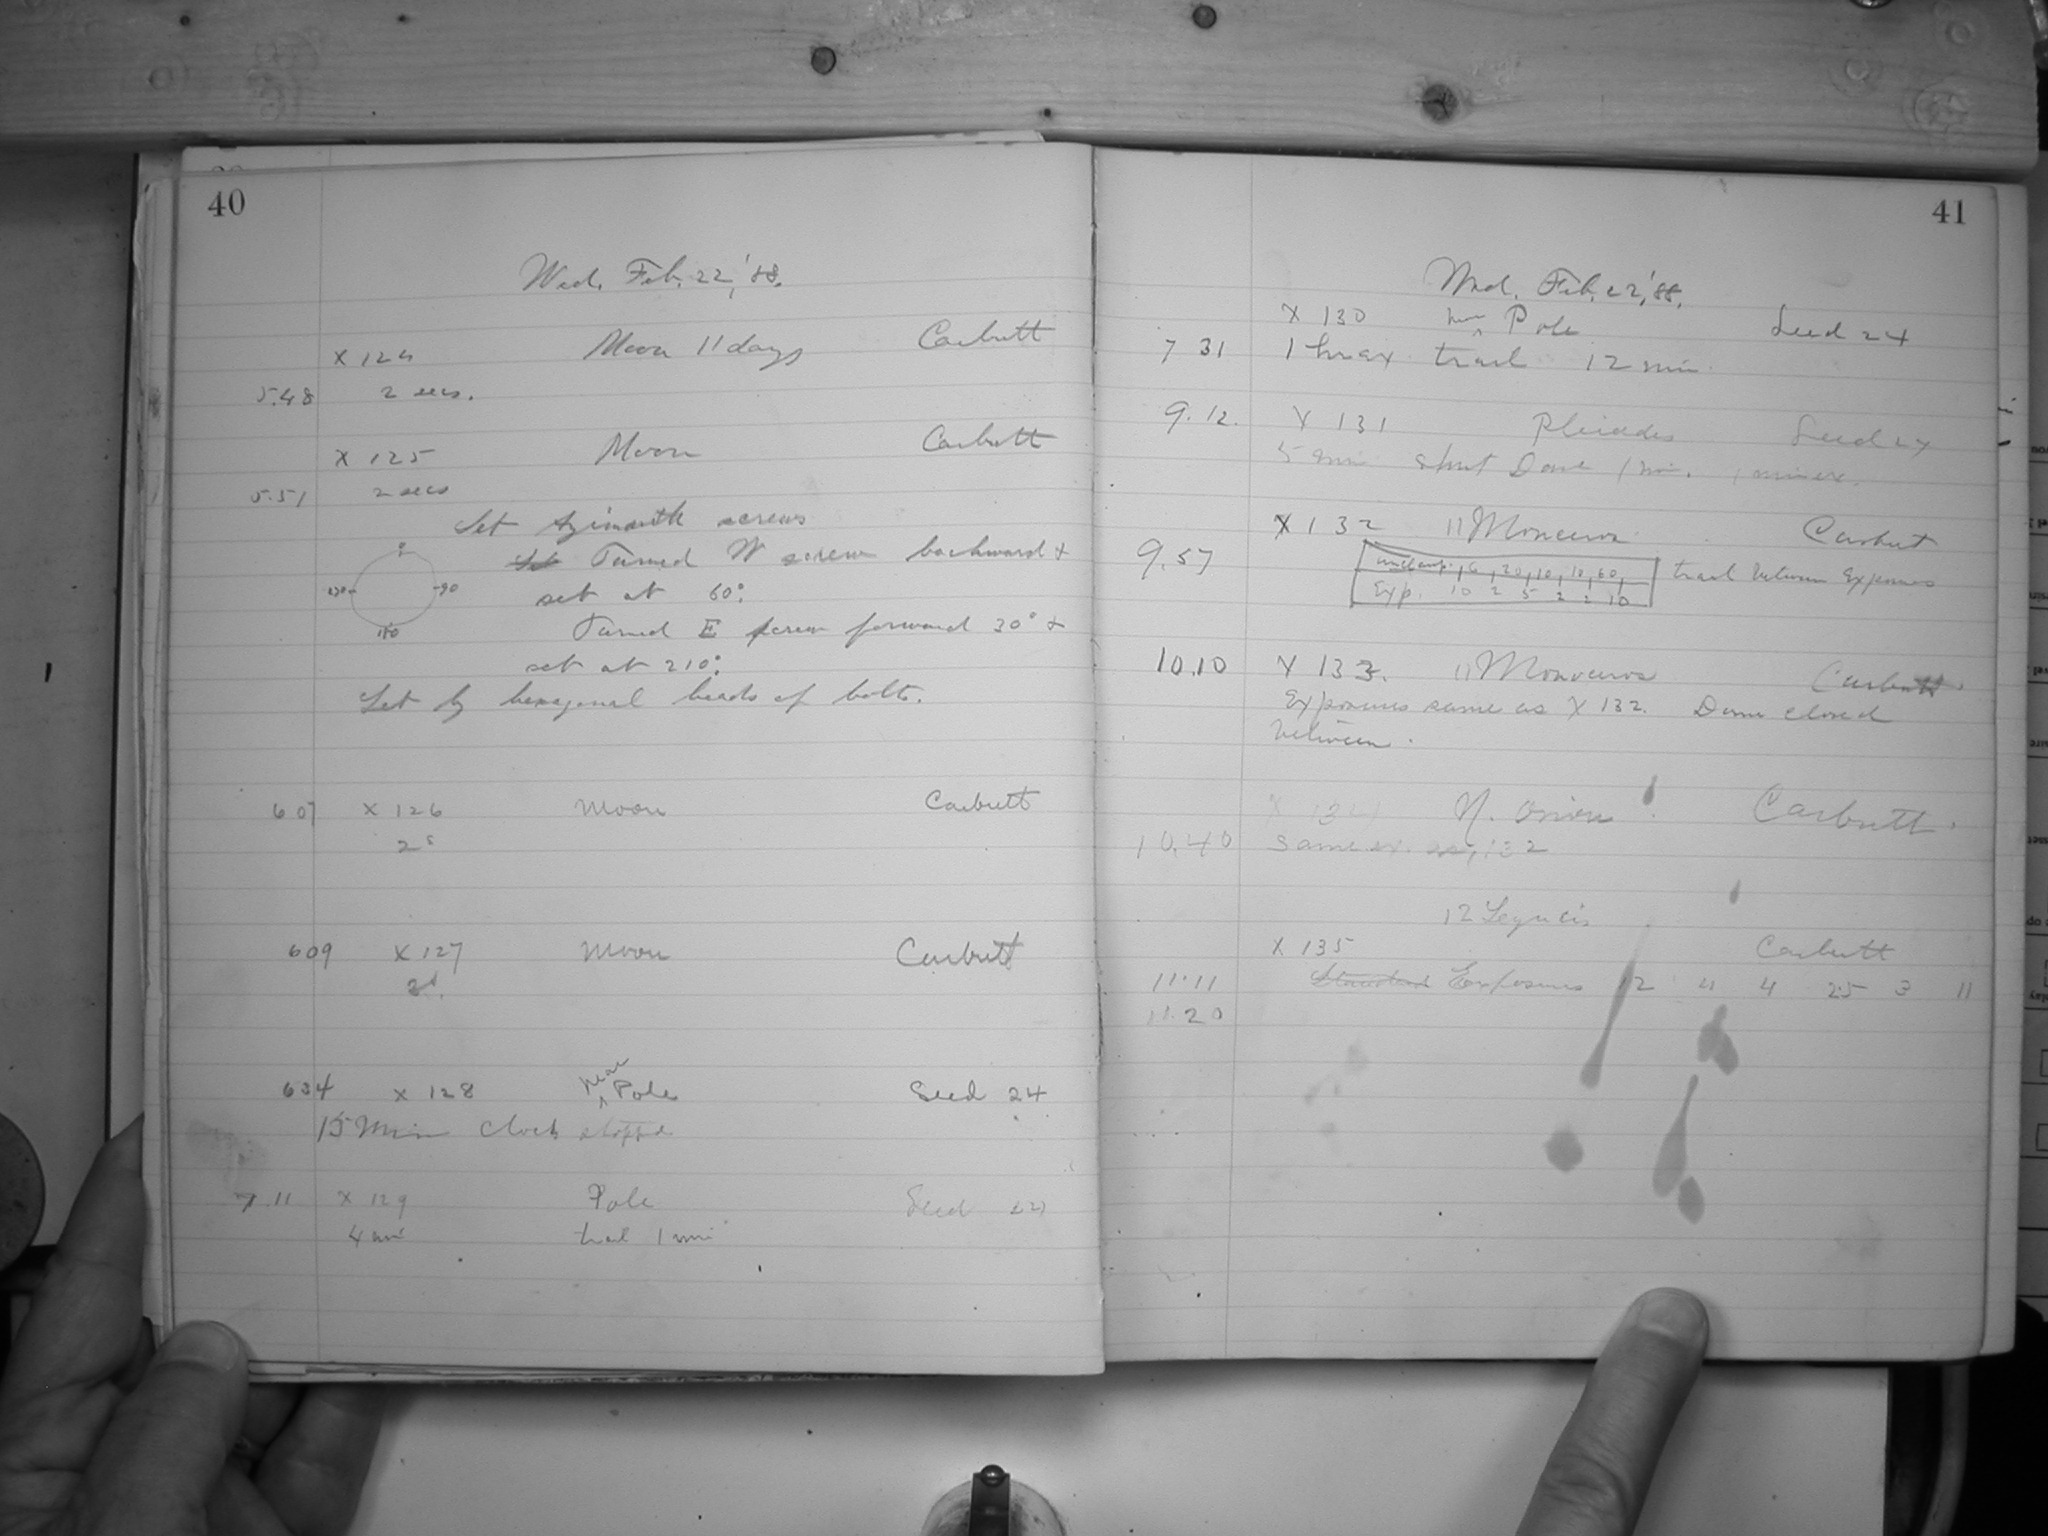 40
Wed. Feb. 22, '88.
X 124 Moon 11 days Carbutt
5.48 2 secs.
X 125 Moon Carbutt
5.51 2 secs
Set Azimuth screws
Set Turned W screw backward &
set at 60°.
Turned E screw forward 30° &
set at 210°.
0
270 90
180
Set by hexagonal heads of bolts.
6 07 X 126 Moon Carbutt
2s
6 09 X 127 Moon Carbutt
6 34 X 128 near Pole Seed 24
15 Min Clock stopped
7.11 X 129 Pole Seed
4 min trail 1 min
41
Wed. Feb. 22, '88.
X 130 near Pole Seed 24
7 31 trail 12 min.
9.12. X 131 Pleiades Seed 24
5 min shut Dome 1 min. 1 min ex.
X 132 11 Monceros Carbutt
9.57 10, 10, 60, trail between Exposures
Exp. 10 2 5 2 2 10
10.10 X 133. 11 Monoceros Carbutt.
Exposures same as X 132. Dome closed
between.
X 134 N. Orion Carbutt.
10.40 same ex. as 132
12 Lyncis
X 135 Carbutt
11.11 Standard Exposures 12 4 25 3 11
11.20